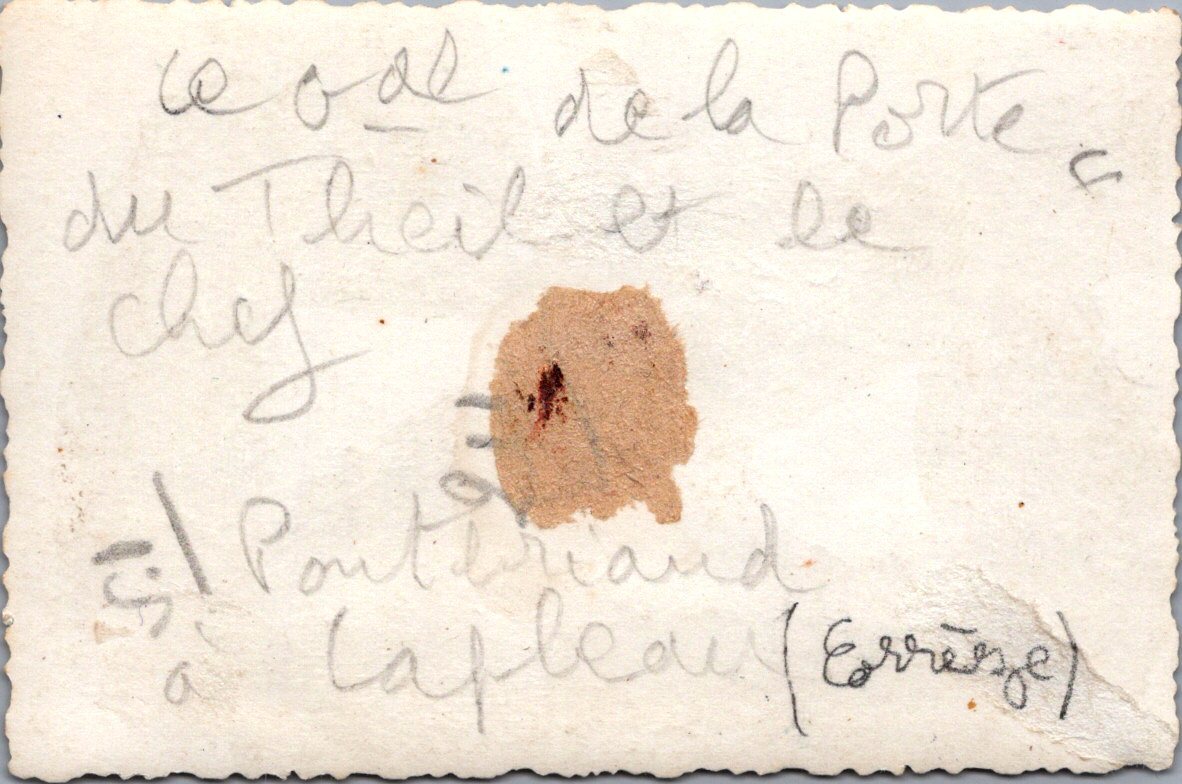 le Gal de la Porte
du Theil et le
chef
Pontbriand
à Lapleau (Corrèze)